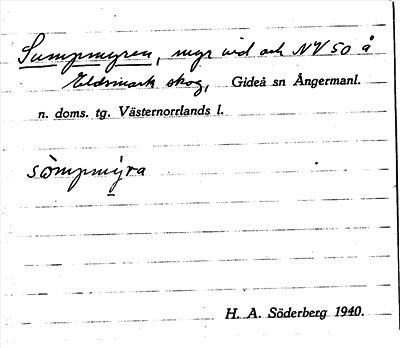 Sumpmyren, myr vid och NV so å
Eldsmark skog, Gideå sn Ångermanl.
n. doms. tg. Västernorrlands l.
sòmpmỳra
H. A. Söderberg 1940.